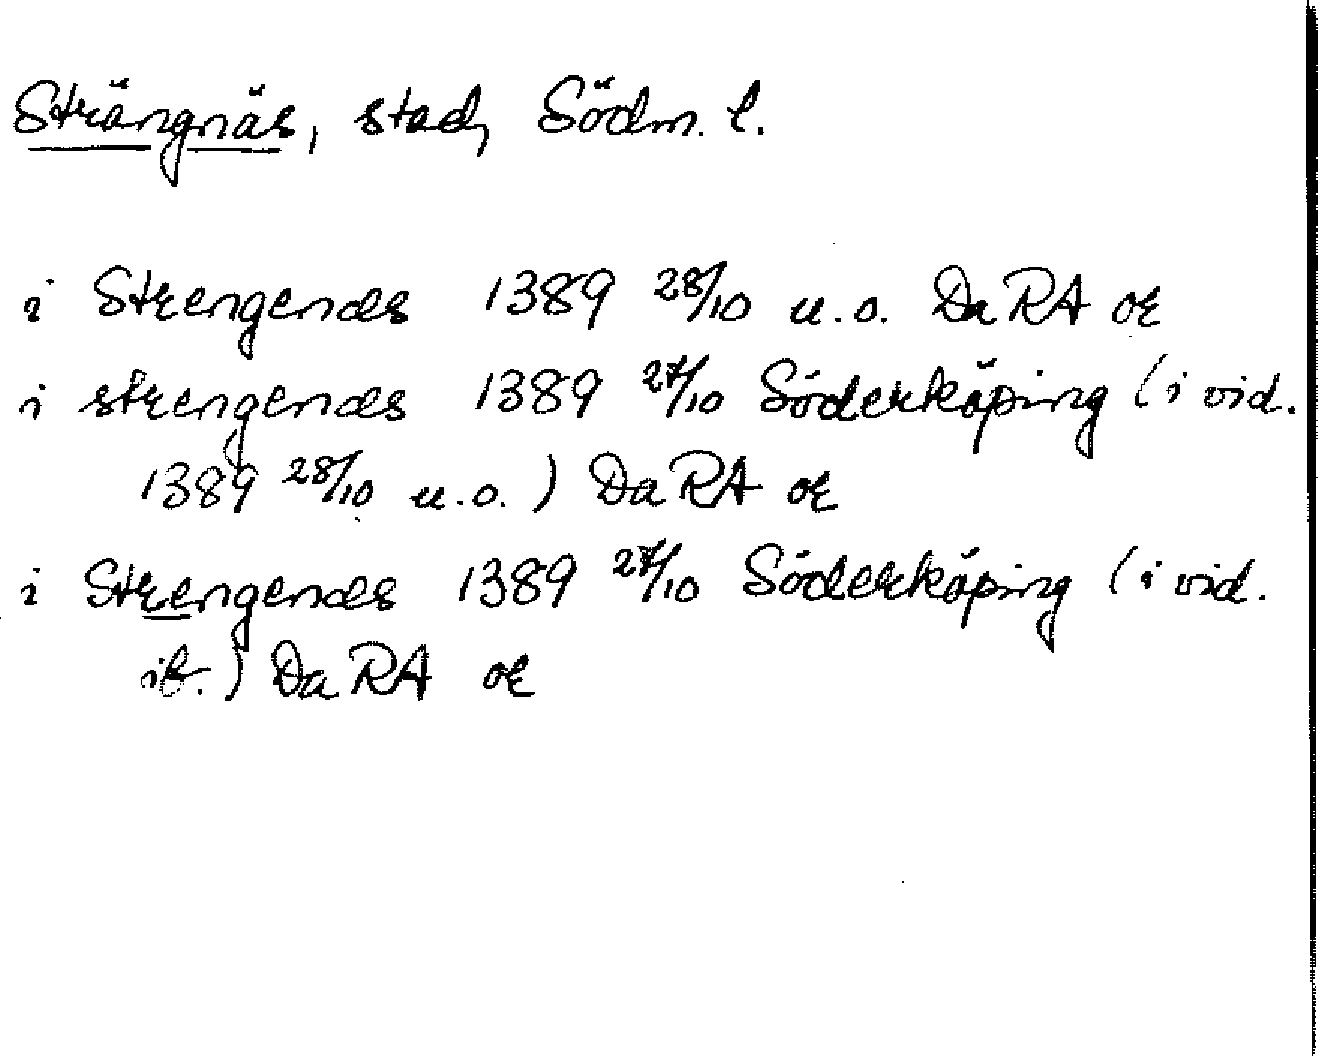 Strängnäs, stad, Södm. l.
i Strengenæs 1389 28/10 u.o. Da RA or
i strengenæs 1389 27/10 Söderköping (i vid.
1389 28/10 u.o.) Da RA or
i Strengenæs 1389 27/10 Söderköping (i vid.
ib.) Da RA or